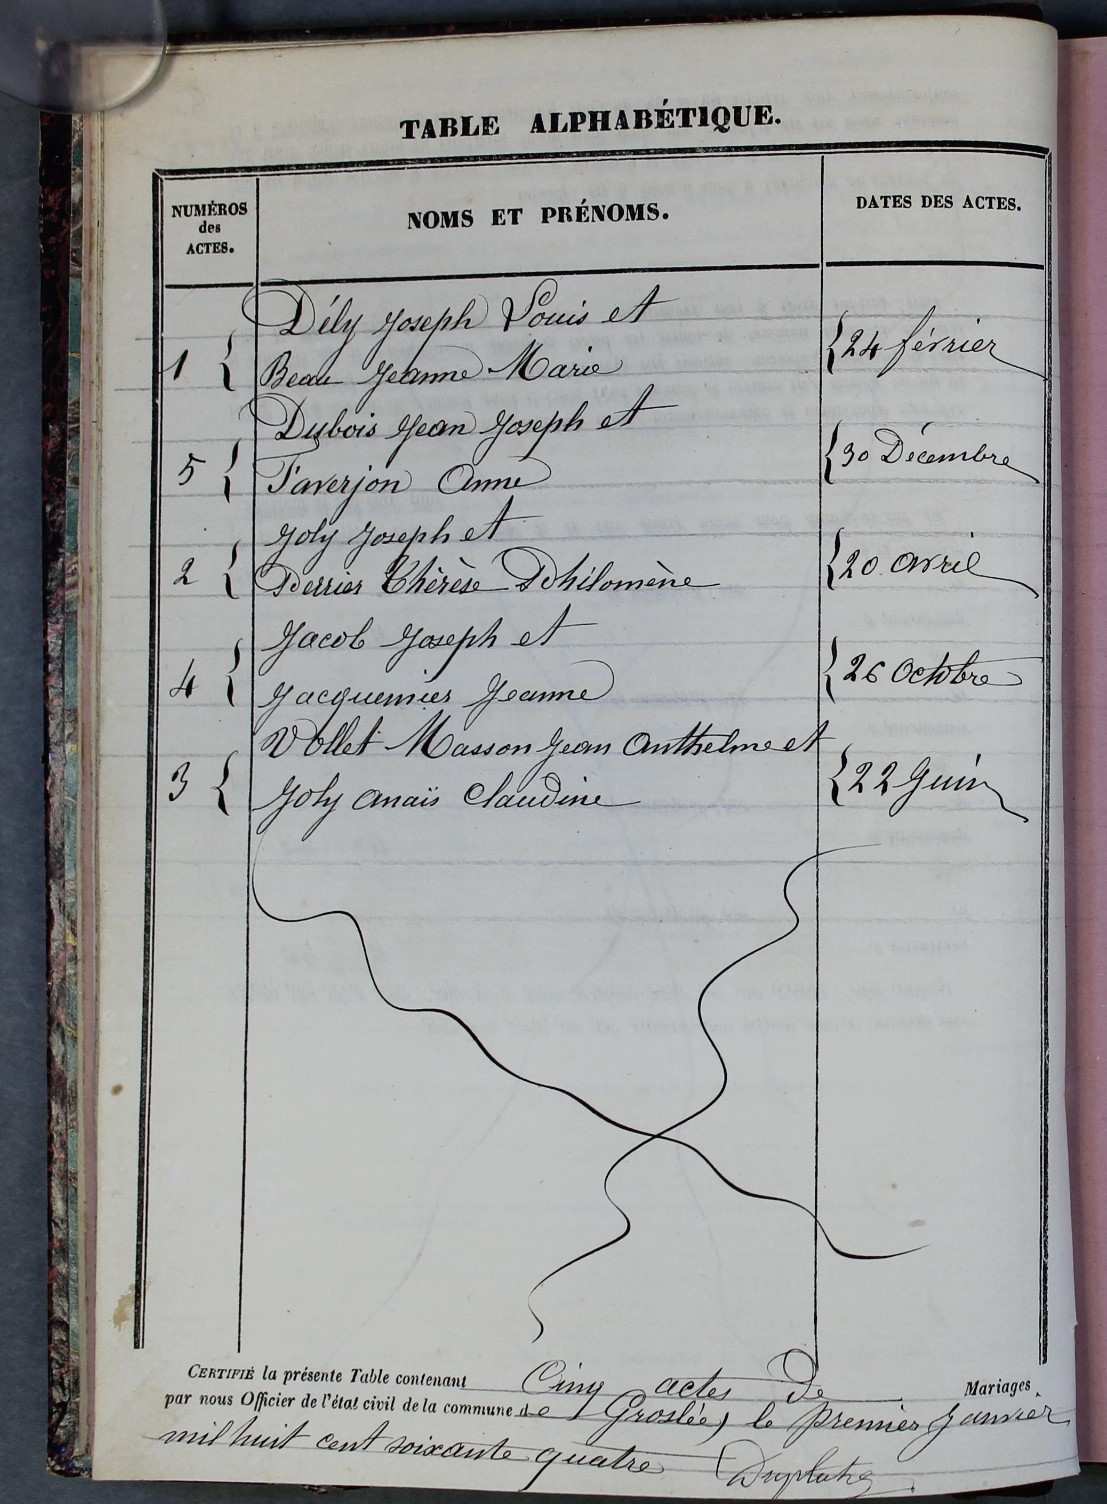 TABLE ALPHABÉTIQUE.
NUMÉROS
des
ACTES.
NOMS ET PRÉNOMS.
DATES DES ACTES.
Dély Joseph Louis et
1 { Beau Jeanne Marie { 24 février
Dubois Jean Joseph et
5 { Faverjon Anne { 30 Décembre
Joly Joseph et
2 { Perrier Thérèse Philomène { 20 avril
Jacob Joseph et
4 { Jacquemier Jeanne { 26 Octobre
Vollet Masson Jean Anthelme et
3 { Joly Anaïs Claudine { 22 Juin
CERTIFIÉ la présente Table contenant Cinq actes De Mariages
par nous Officier de l'état civil de la commune de Groslée, le premier Janvier
mil huit cent soixante quatre